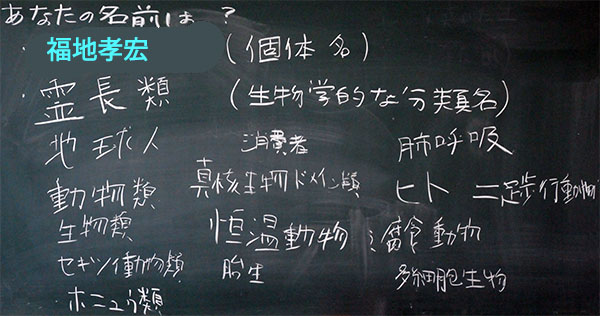 あなたの名前は ?
・福地孝宏 (個体名)
・霊長類 (生物学的な分類名)
地球人 消費者 肺呼吸
動物類 真核生物ドメイン類 ヒト 二足歩行動物
生物類 恒温動物 腐食動物
セキツイ動物類 胎生 多細胞生物
・ホニュウ類